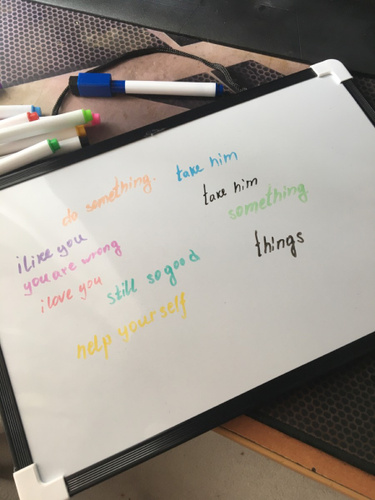 do something.
take him
take him
something
i like you
you are wrong
i love you
still so good
things
help your self